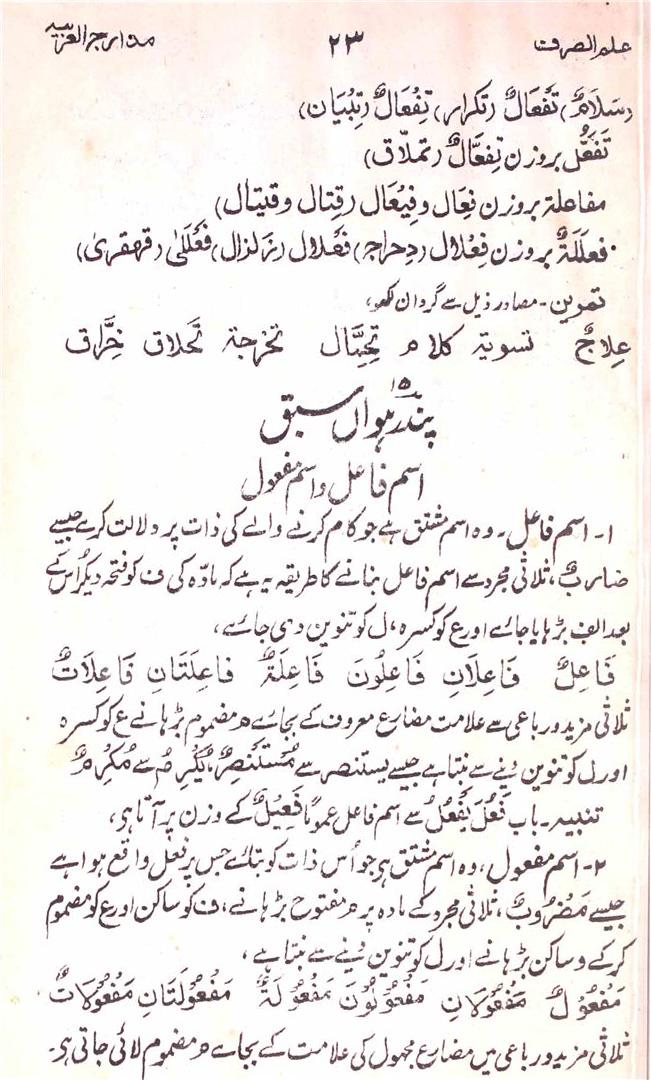 علم الصرف ۲۳ مدارج العربیہ
(سَلَامٌ) تَفْعَالٌ (تکرار) تِفْعَالٌ (تِبْیَان)
تَفَعُّل بروزن تِفِعَّالٌ (تملّاق)
مفاعلة بروزن فِعَال و فِیْعَال (قتال و قیتال)
فعلَلَةٌ بروزن فِعْلَال (دحراجہ) فَعْلَال (زلزال) فَعْلَلٰی (قہقریٰ)
تمرین۔ مصادر ذیل سے گردان لکھو،
عِلاجٌ تسویة کلام تِحِمَّال تخرجة تحلاق خِرَّاق
۱۵
پندرہواں سبق
اسم فاعل و اسم مفعول
۱۔ اسم فاعل۔ وہ اسم مشتق ہے جو کام کرنے والے کی ذات پر دلالت کرے جیسے
ضاربٌ، ثلاثی مجرد سے اسم فاعل بنانے کا طریقہ یہ ہے کہ مادّہ کی ف کو فتحہ دیکر اُس کے
بعد الف بڑہایا جائے اور ع کو کسرہ، ل کو تنوین دی جائے،
فَاعِلٌ فَاعِلَانِ فَاعِلُونَ فَاعِلَةٌ فَاعِلَتَانِ فَاعِلَاتٌ
ثلاثی مزید و رباعی سے علامت مضارع معروف کے بجاے م مضموم بڑہانے ع کو کسرہ
اور ل کو تنوین دینے سے بنتا ہے جیسے یستنصر سے مُسْتَنْصِرٌ، یُکْرِمُ سے مُکْرِمٌ
تنبیہ۔ باب فَعُلَ یَفْعُلُ سے اسم فاعل عموماً فَعِیْلٌ کے وزن پر آتا ہی،
۲۔ اسم مفعول، وہ اسم مشتق ہی جو اُس ذات کو بتائے جس پر فعل واقع ہوا ہے
جیسے مَضْرُوبٌ، ثلاثی مجرد کے مادہ پر م مفتوح بڑہانے، ف کو ساکن اور ع کو مضموم
کر کے و ساکن بڑہانے اور ل کو تنوین دینے سے بنتا ہے،
مَفْعُوْلٌ مَفْعُوْلَانِ مَفْعُوْلُوْنَ مَفْعُوْلَةٌ مَفْعُوْلَتَانِ مَفْعُوْلَاتٌ
ثلاثی مزید و رباعی میں مضارع مجہول کی علامت کے بجاے م مضموم لائی جاتی ہی۔